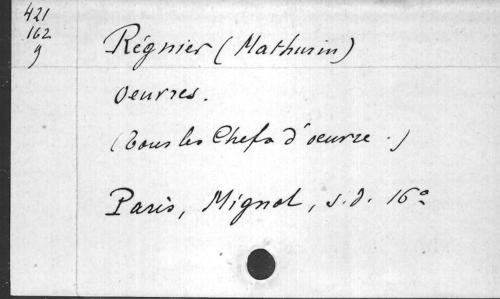 421
162
9
Régnier (Mathurin)
Oeuvres.
(Tous les Chefs d'oeuvre.)
Paris, Mignot, s.d. 16°